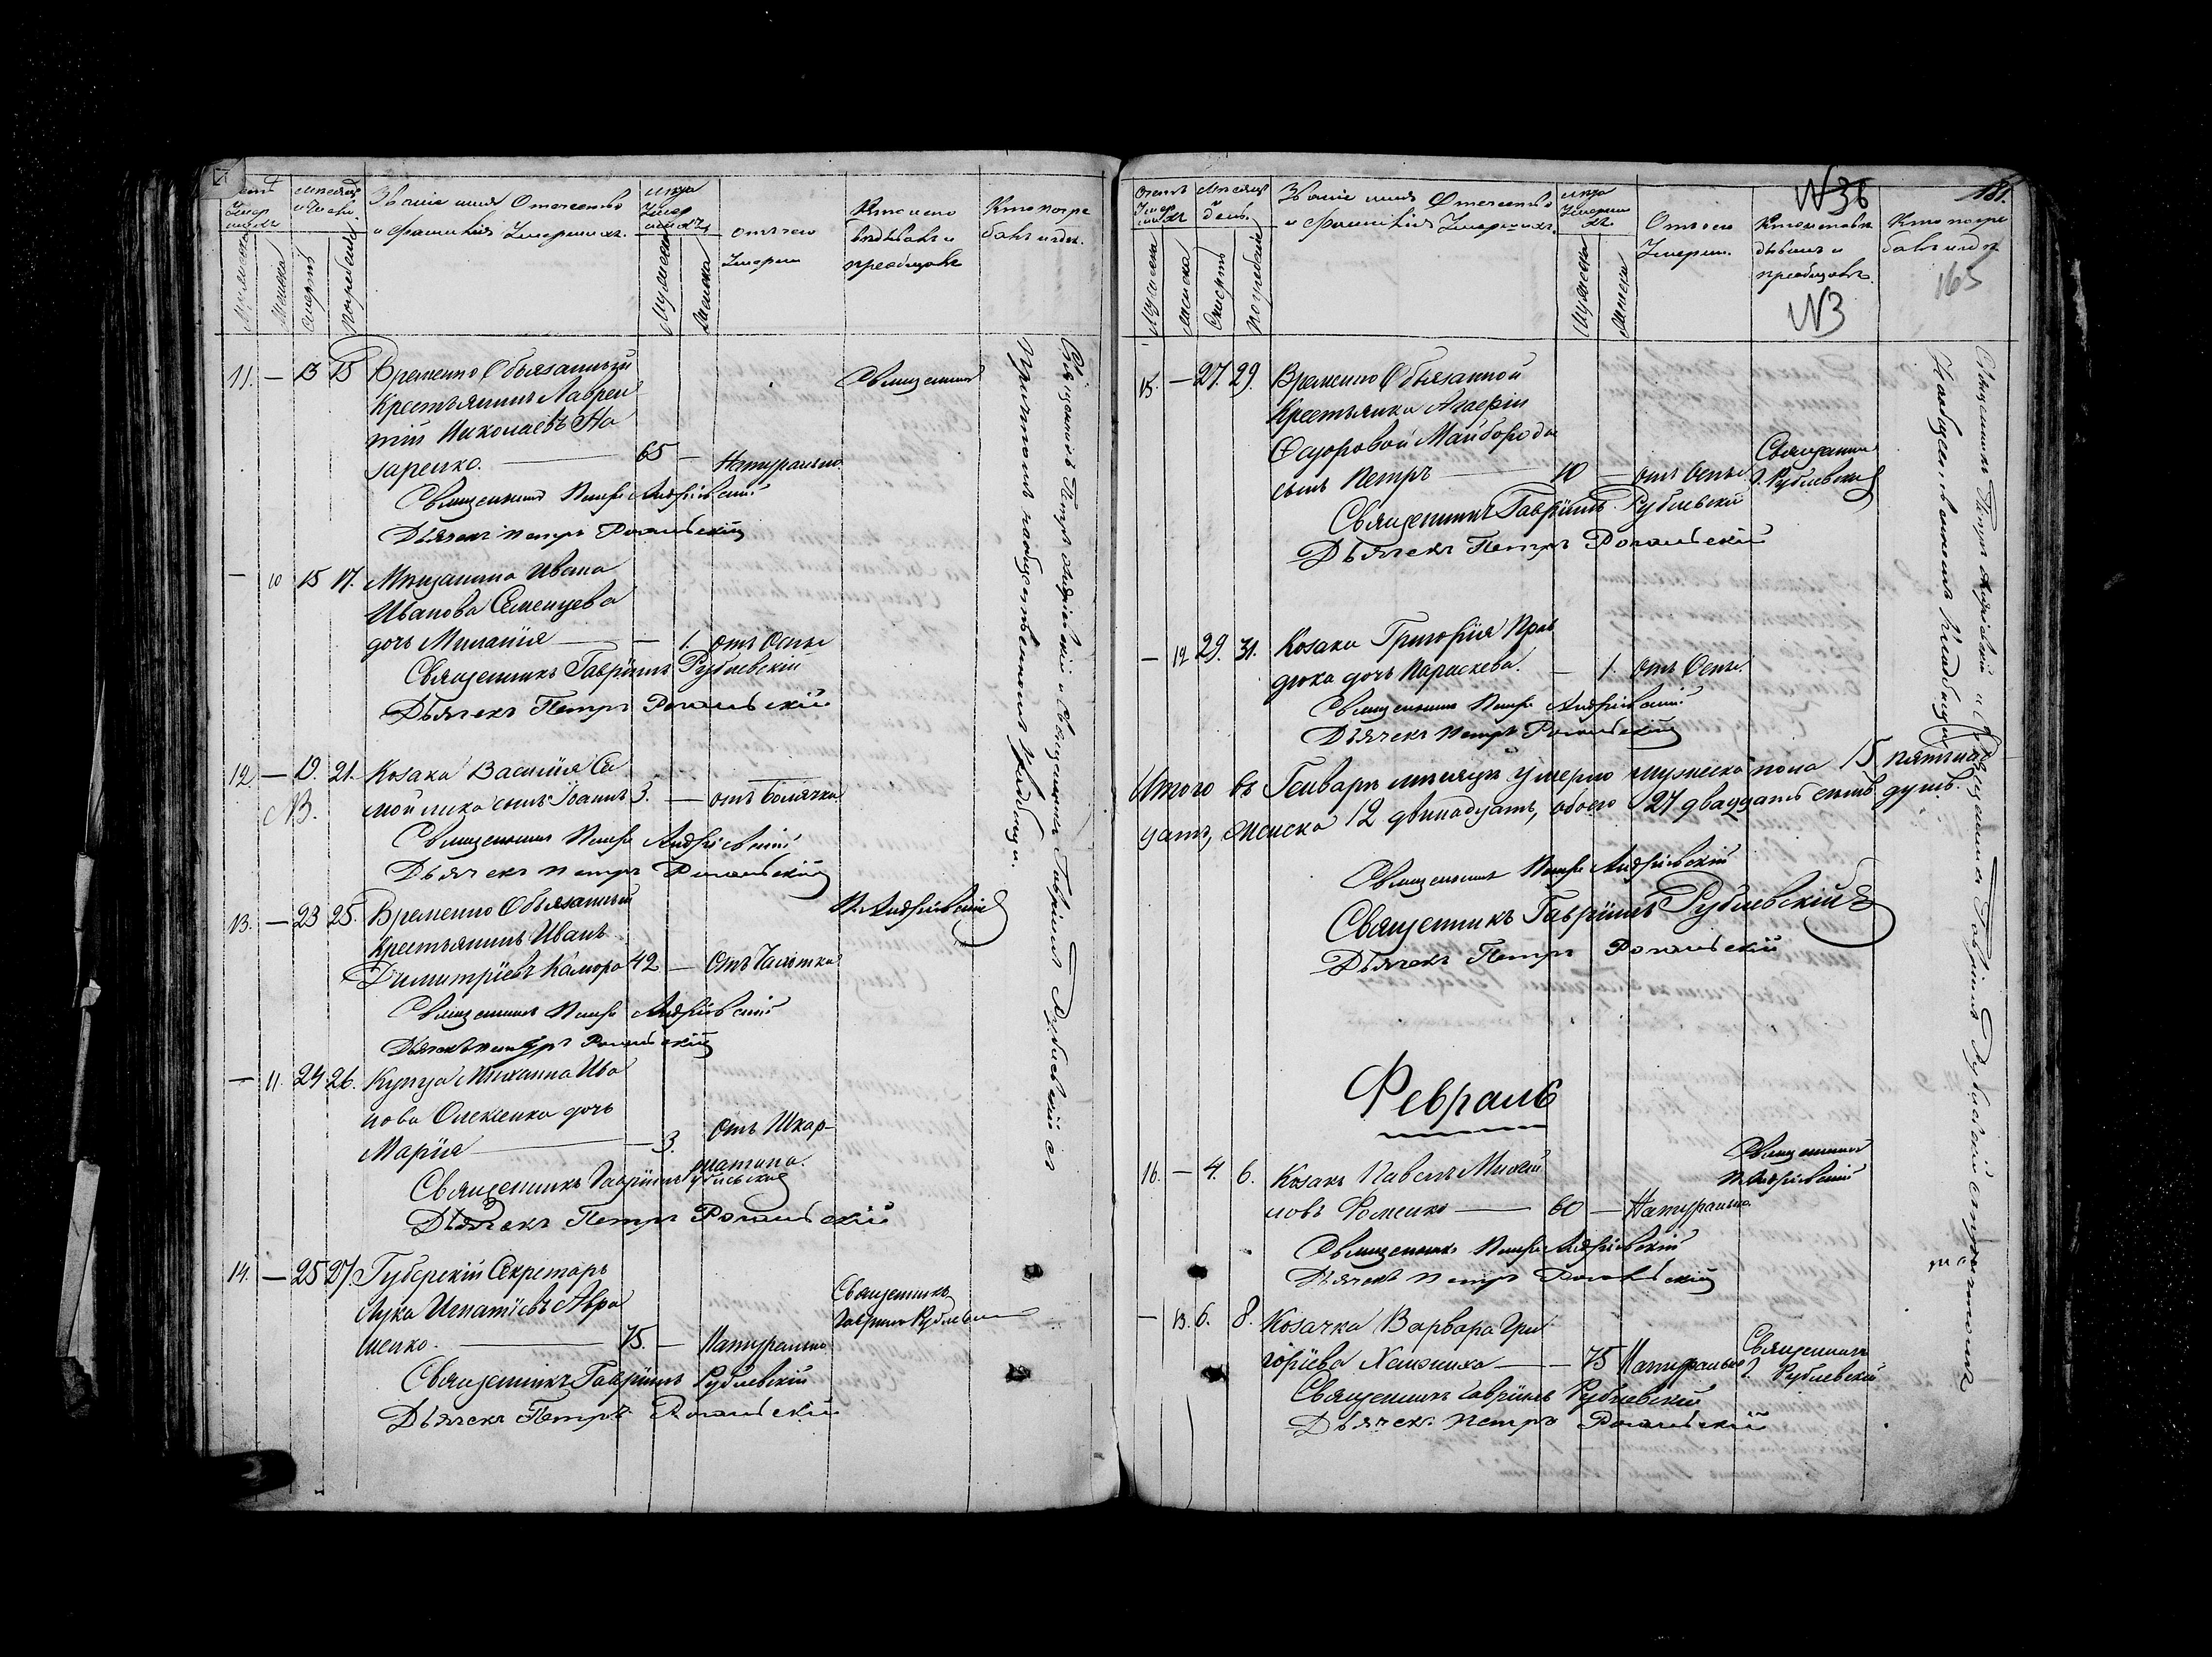 Звание имя Отчество
и фамилия Умершихъ.
Лета
Умер
шихъ
отъ чего
Умерли
Кто исповѣдывалъ и
преобщовъ
Кто погре
балъ и гдѣ.
Мужеска
Женска
Смерть
Погребение
Мужеска
Женска
11. — 13 15 Временно Обязанный
Крестьянинъ Лаврен
тий Николаевъ На
заренко. — 65 — Натурально.
Священникъ
Священникъ Петръ Андріевскій
Дьячекъ Петръ Рогальскій
— 10 15 17. Мѣщанина Ивана
Иванова Семенцева
дочь Миланія — — 1. отъ Оспы
Священникъ Гавріилъ Рублевскій
Дьячекъ Петръ Рогальскій
12. — 19. 21. Козака Василія Са
NB.
мойлика сынъ Іоаннъ 3. — отъ Болячки
Священникъ Петръ Андріевскій
Дьячекъ Петръ Рогальскій
13. — 23 25. Временно Обязанный
П. Андріевскій
Крестьянинъ Иванъ
Димитріевъ Камора 42 — Отъ Чахотки
Священникъ Петръ Андріевскій
Дьячекъ Петръ Рогальскій
— 11. 24 26. Купца Михаила Ива
нова Олексенка дочь
Марія — — 3. Отъ Шкар-
латина.
Священникъ Гавріилъ Рублевскій
Дьячекъ Петръ Рогальскій
14. — 25 27. Губерскій Секретарь
Лука Игнатіевъ Авра
менко. — 75. — Натурально
Священникъ
Гавріилъ Рублевскій
Священникъ Гавріилъ Рублевскій
Дьячекъ Петръ Рогальскій
Священникъ Петръ Андріевскій и Священникъ Гавріилъ Рублевскій съ
Причтомъ на общественномъ кладбищи.
N36
181.
165
N3
Звание имя Отчество
и фамилия Умершихъ.
Отъ чего
Умерли.
Кто погре
балъ и гдѣ
Мужеска
Женска
Смерть
Погребение
Мужеска
Женска
15. — 27. 29. Временно Обязанной
Крестьянки Агафіи
Ѳедоровой Майбороды
сынъ Петръ — 10 — отъ Оспы
Священникъ
Г. Рублевскій
Священникъ Гавріилъ Рублевскій
Дьячекъ Петръ Рогальскій
— 12 29. 31. Козака Григорія Прав
дюка дочь Параскева. — 1. отъ Оспы.
Священникъ Петръ Андріевскій
Дьячекъ Петръ Рогальскій
Итого въ Генварѣ мѣсяцѣ умерло мужеска пола 15 пятнад
цать, женска 12 двинадцать, обоего 27 двадцать семь душъ.
Священникъ Петръ Андріевскій
Священникъ Гавріилъ Рублевскій
Дьячекъ Петръ Рогальскій
Февраль
16. — 4. 6. Козакъ Павелъ Михай
ловъ Фоменко — 60 — Натурально
Священникъ
П. Андріевскій
Священникъ Петръ Андріевскій
Дьячекъ Петръ Рогальскій
— 13. 6. 8. Козачка Варвара Гри
горіева — — 75 Натурально
Священникъ
Г. Рублевскій
Священникъ Гавріилъ Рублевскій
Дьячекъ Петръ Рогальскій
Священникъ Петръ Андріевскій и Священникъ Гавріилъ Рублевскій съ причтомъ
На общественномъ кладбищи